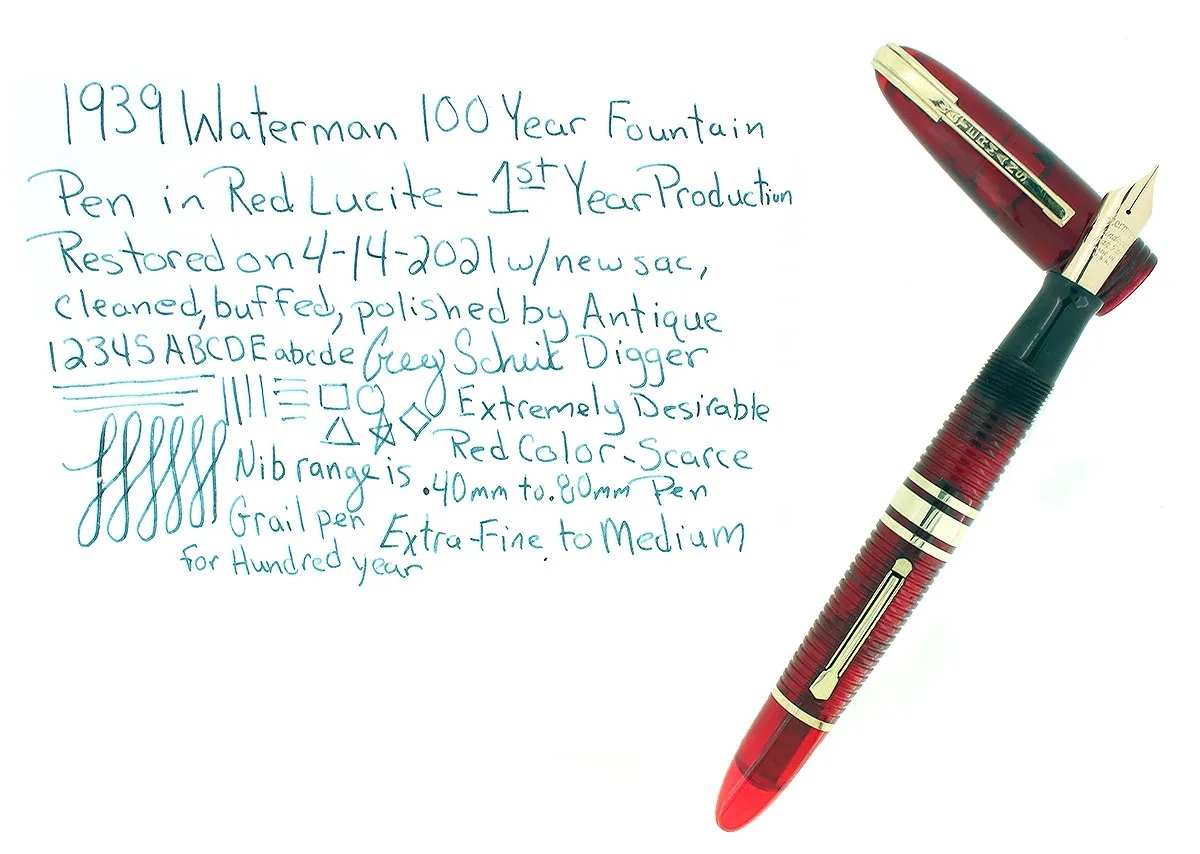 1939 Waterman 100 Year Fountain
Pen in Red Lucite - 1st Year Production
Restored on 4-14-2021 w/new sac,
cleaned, buffed, polished by Antique
12345 ABCDE abcde Digger
Extremely Desirable
Red Color-Scarce
Nib range is .40mm to .80mm Pen
Grail pen Extra-Fine to Medium
for Hundred year